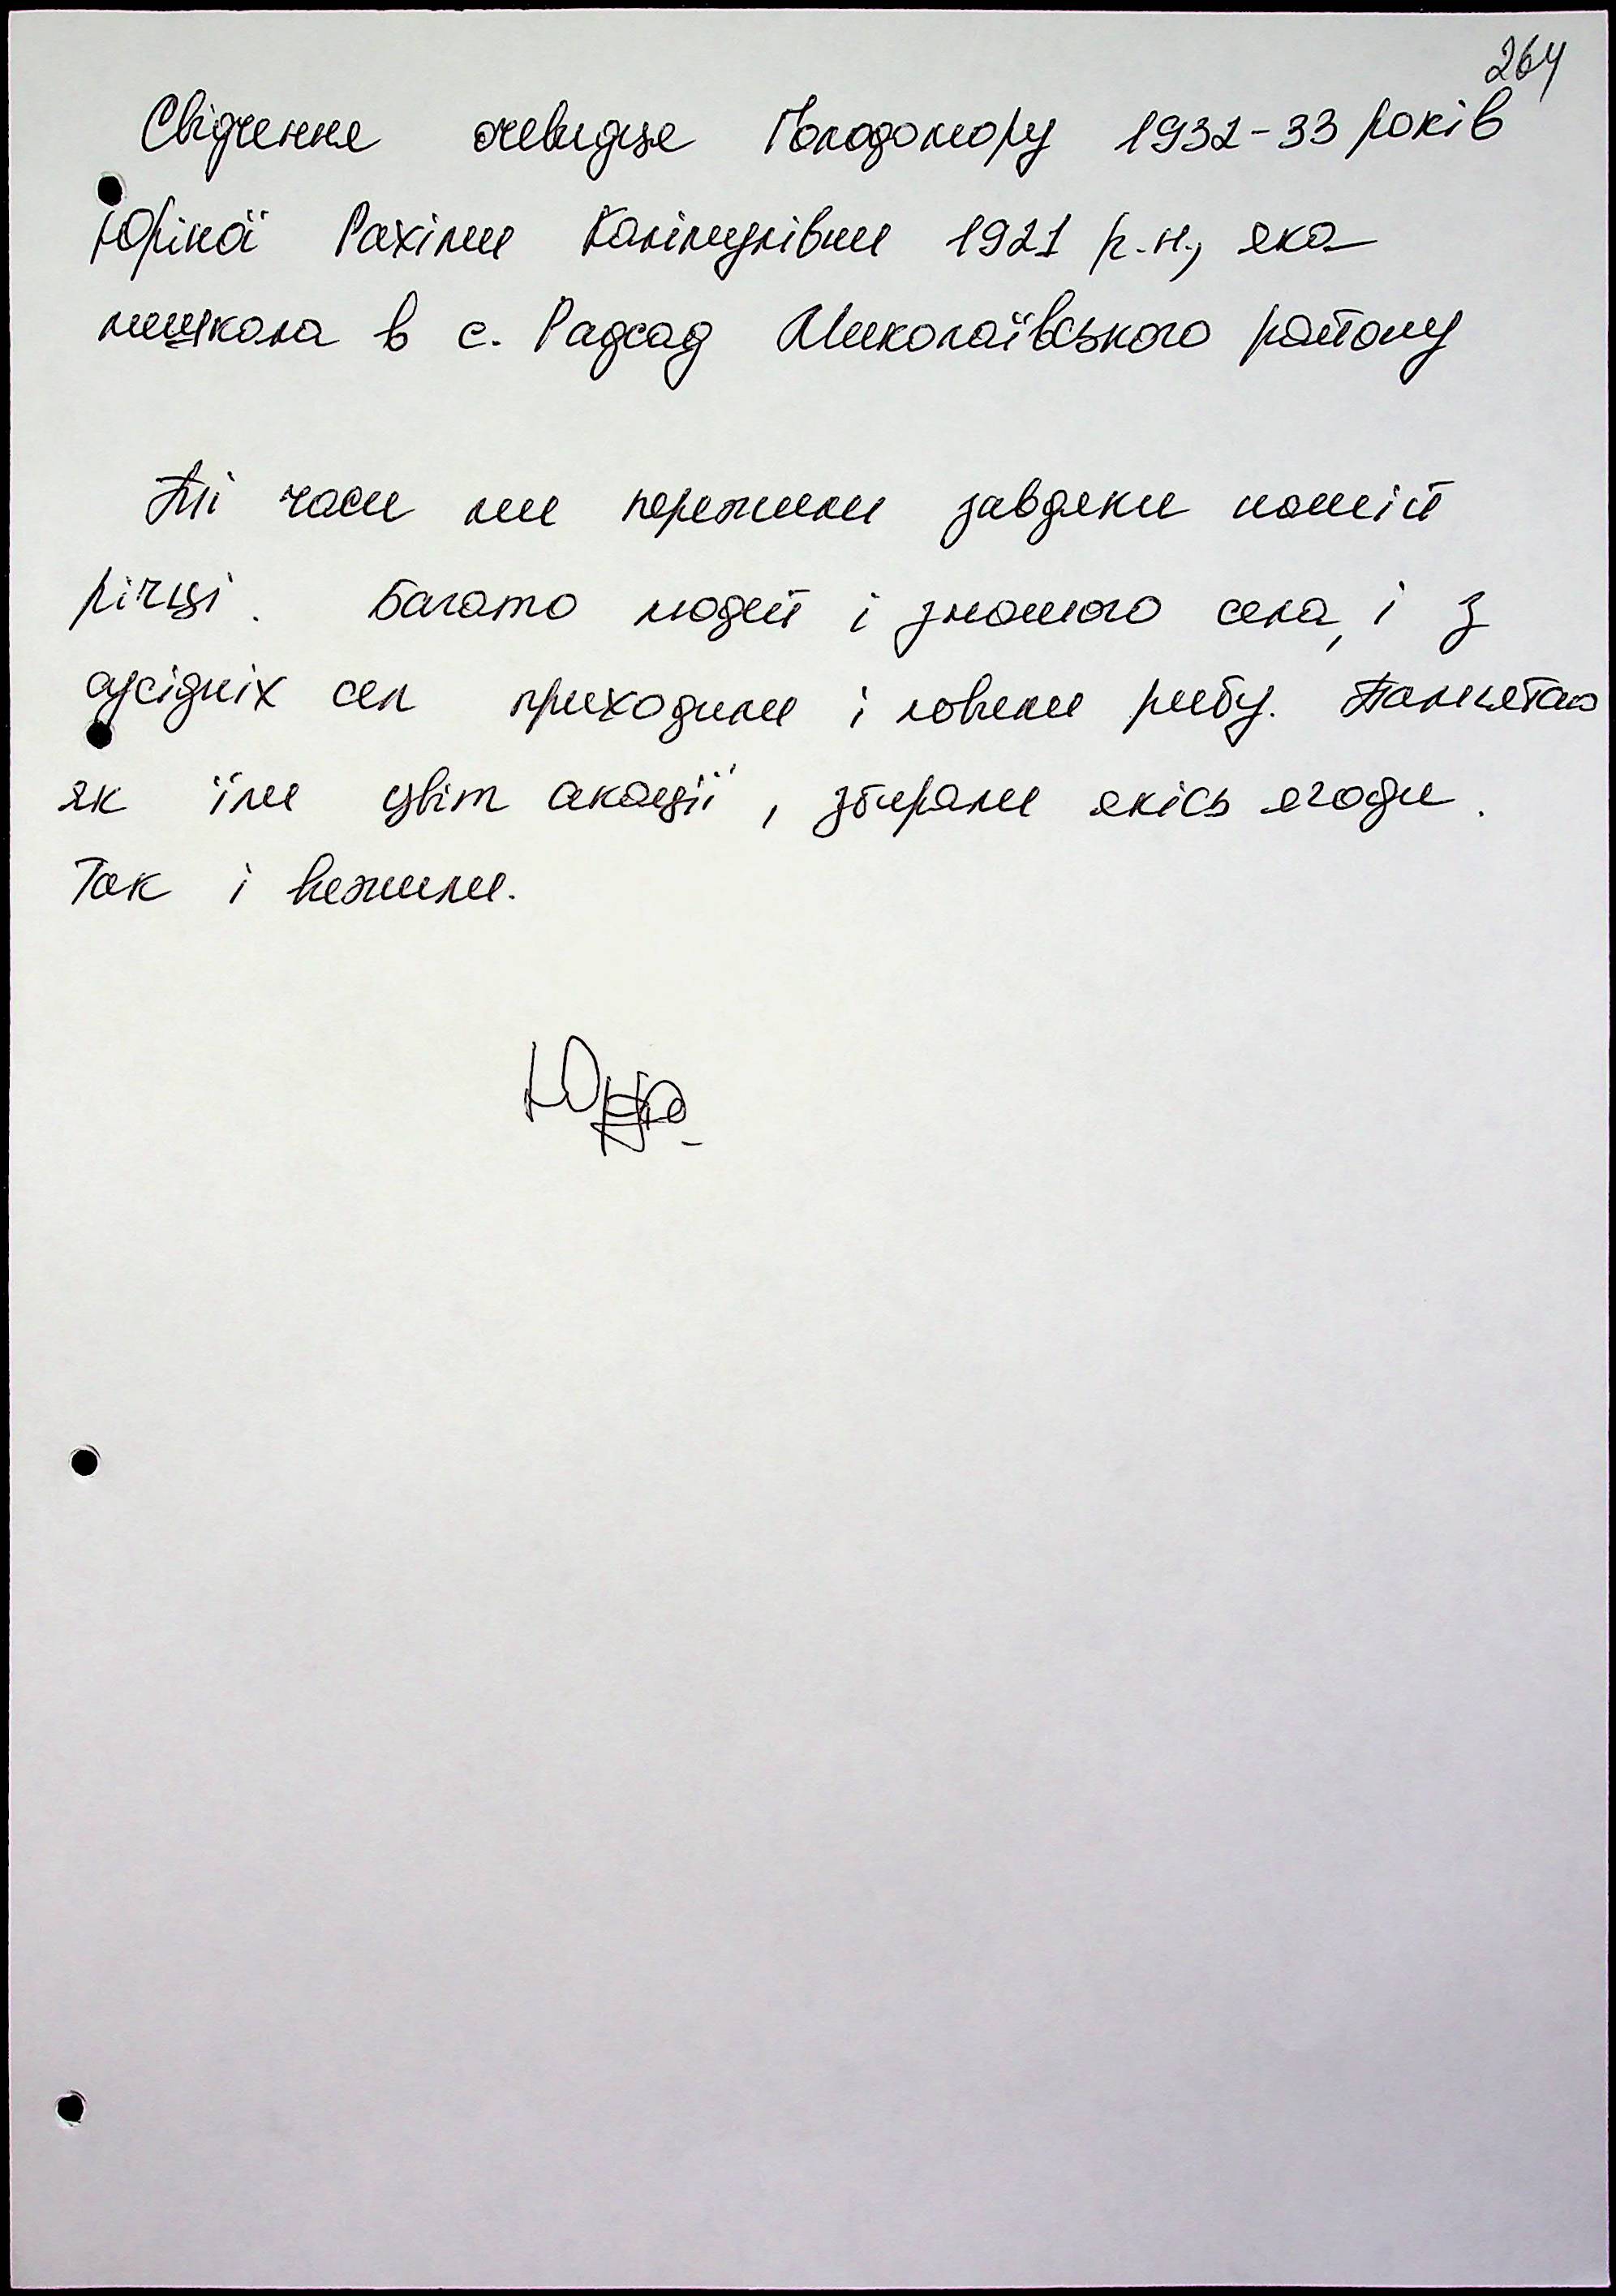 264
Свідчення очевидця Голодомору 1932-33 років
Юріної Рахіми Калімулівни 1921 р.н., яка
мешкала в с. Радсад Миколаївського району
Ті часи ми пережили завдяки нашій
річці. Багато людей і знашого села, і з
сусідніх сел приходили і ловили рибу. Памʼятаю
як їли цвіт акації, збирали якісь ягоди.
Так і вижили.